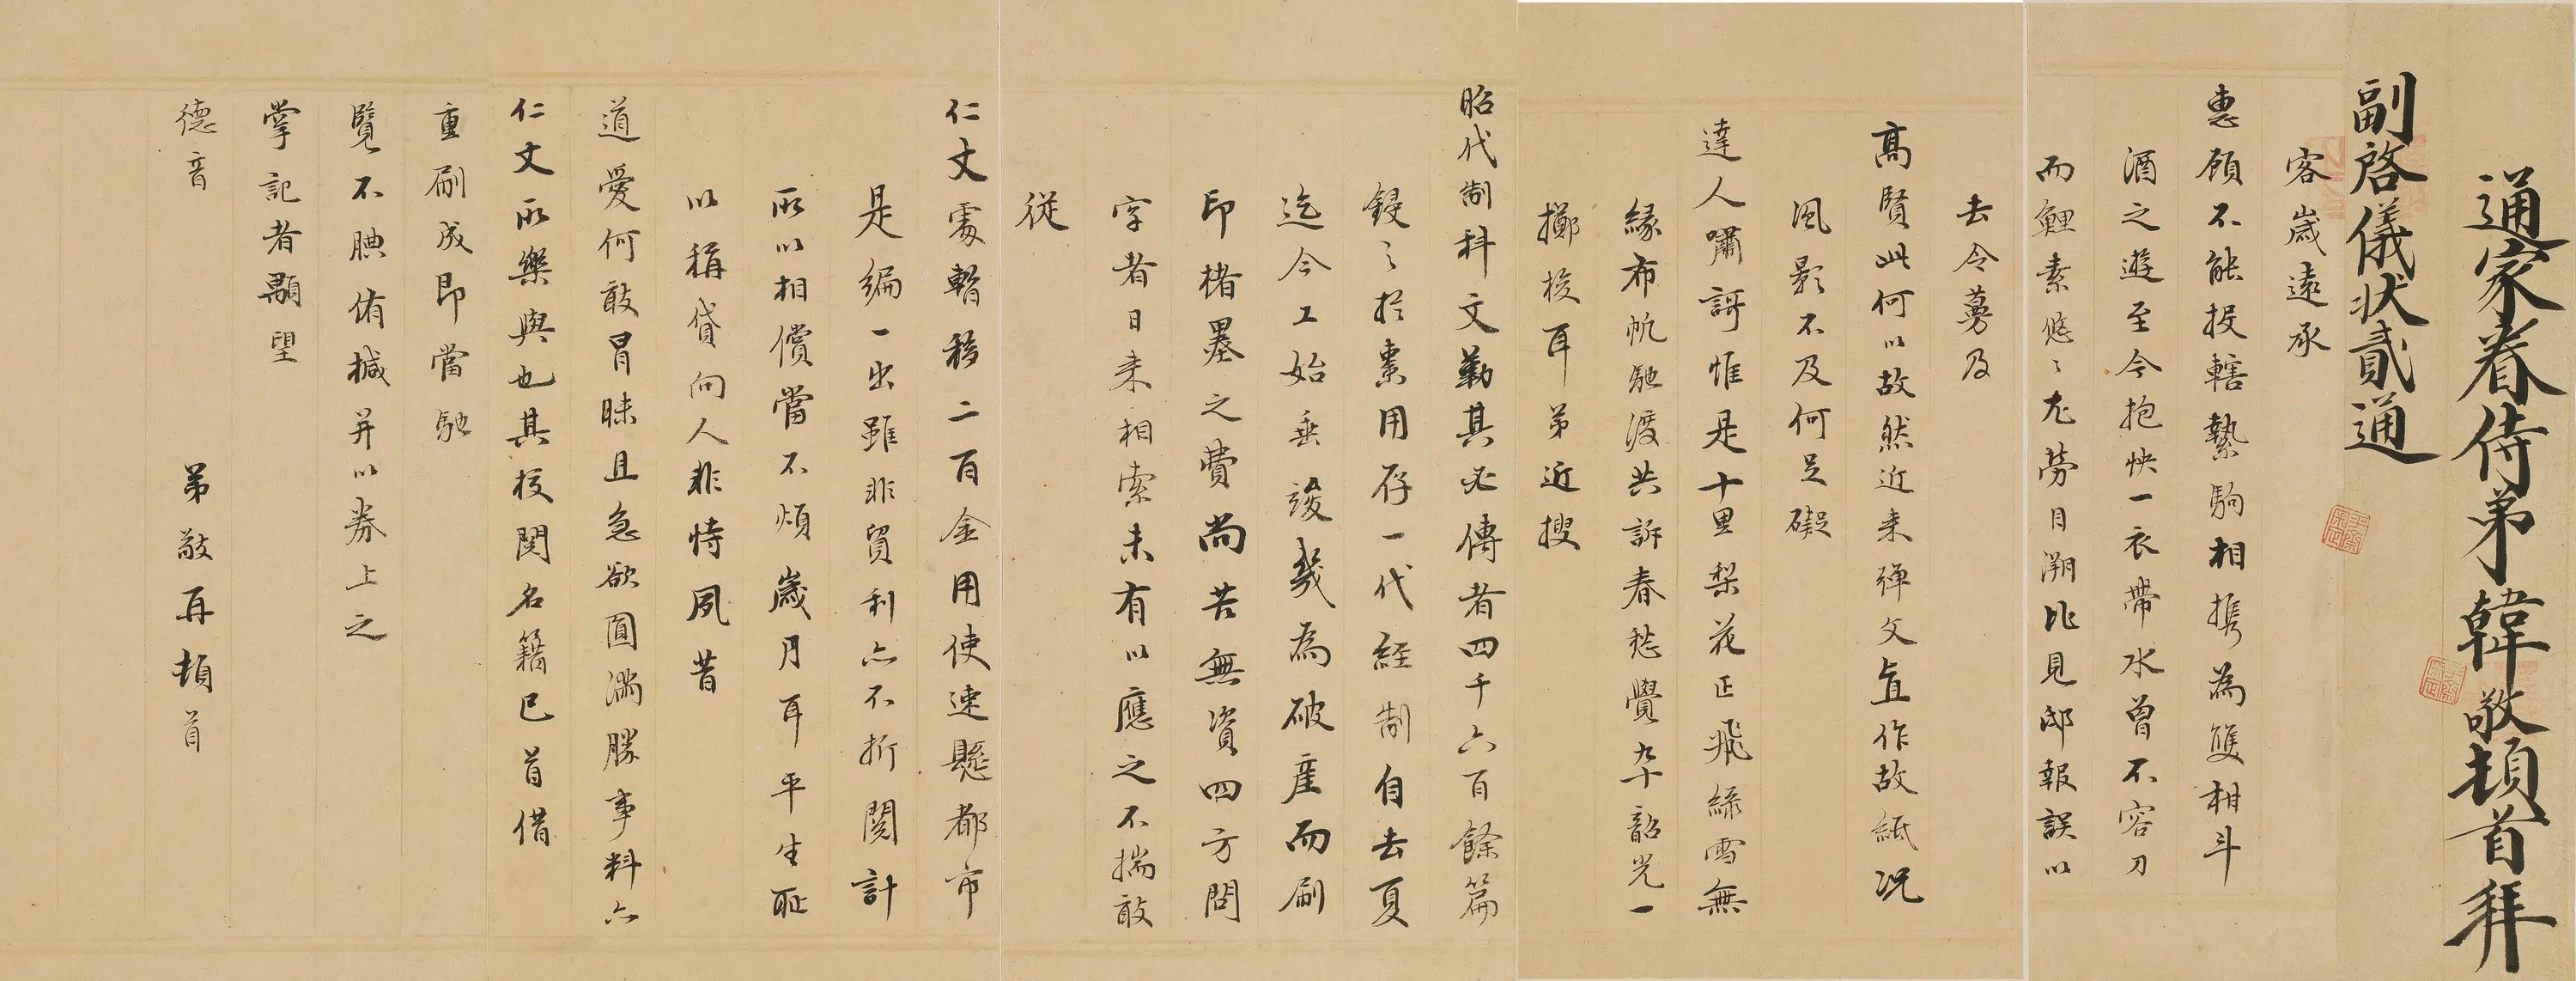 通家眷侍弟韓敬頓首拜
副啓儀狀貳通
客歲遠承
惠顧不能投轄縶駒相携為雙柑斗
酒之遊至今抱怏一衣帶水曾不容刀
而鯉素悠〻尤勞目溯比見邸報誤以
去令蒭及
高賢此何以故然近来彈文直作故紙况
風影不及何足礙
達人嘯訶惟是十里梨花正飛綠雪無
緣布帆馳渡共訴春愁覺九十韶光一
擲梭耳弟近搜
昭代制科文勒其必傳者四千六百餘篇
鋟之於棗用存一代経制自去夏
迄今工始垂竣幾為破産而刷
印楮墨之費尚苦無資四方問
字者日来相索未有以應之不揣敢
従
仁丈處暫移二百金用使速懸都市
是編一出雖非貿利亦不折閱計
所以相償當不煩歲月耳平生耻
以稱貸向人非恃夙昔
道愛何敢冒昧且急欲圓滿勝事料亦
仁丈所樂與也其挍閱名籍已首借
重刷成即當馳
覽不腆侑椷并以券上之
掌記者顒望
德音
弟敬再頓首